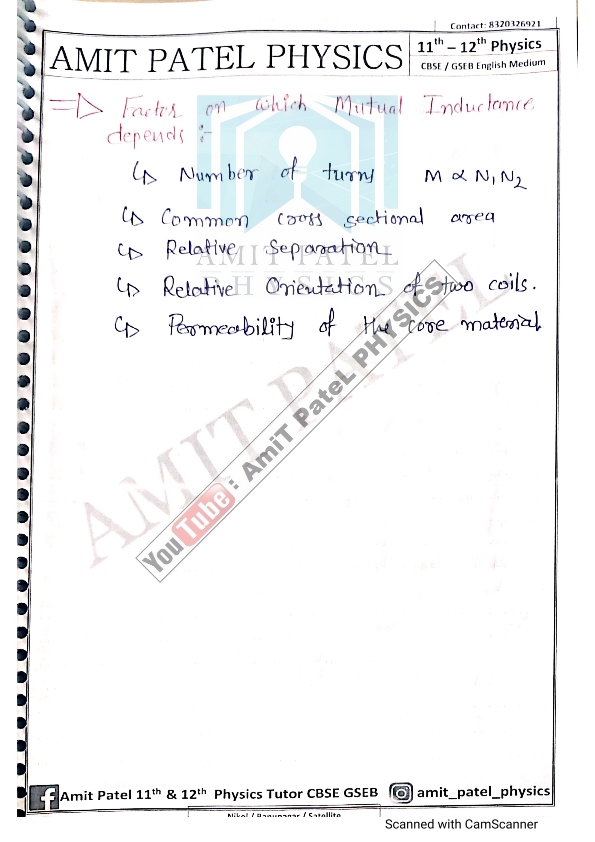 Contact: 8320326921
AMIT PATEL PHYSICS
11th – 12th Physics
CBSE / GSEB English Medium
=> Factors on which Mutual Inductance
depends :-
↳ Number of turns M ∝ N₁N₂
↳ Common cross sectional area
↳ Relative Separation
↳ Relative Orientation of two coils.
↳ Permeability of the core material
AMIT PATEL
PHYSICS
AMIT PATEL
YouTube : AmiT PateL PHYSICS
Amit Patel 11th & 12th Physics Tutor CBSE GSEB
amit_patel_physics
Nikol / Bapunagar / Satellite
Scanned with CamScanner